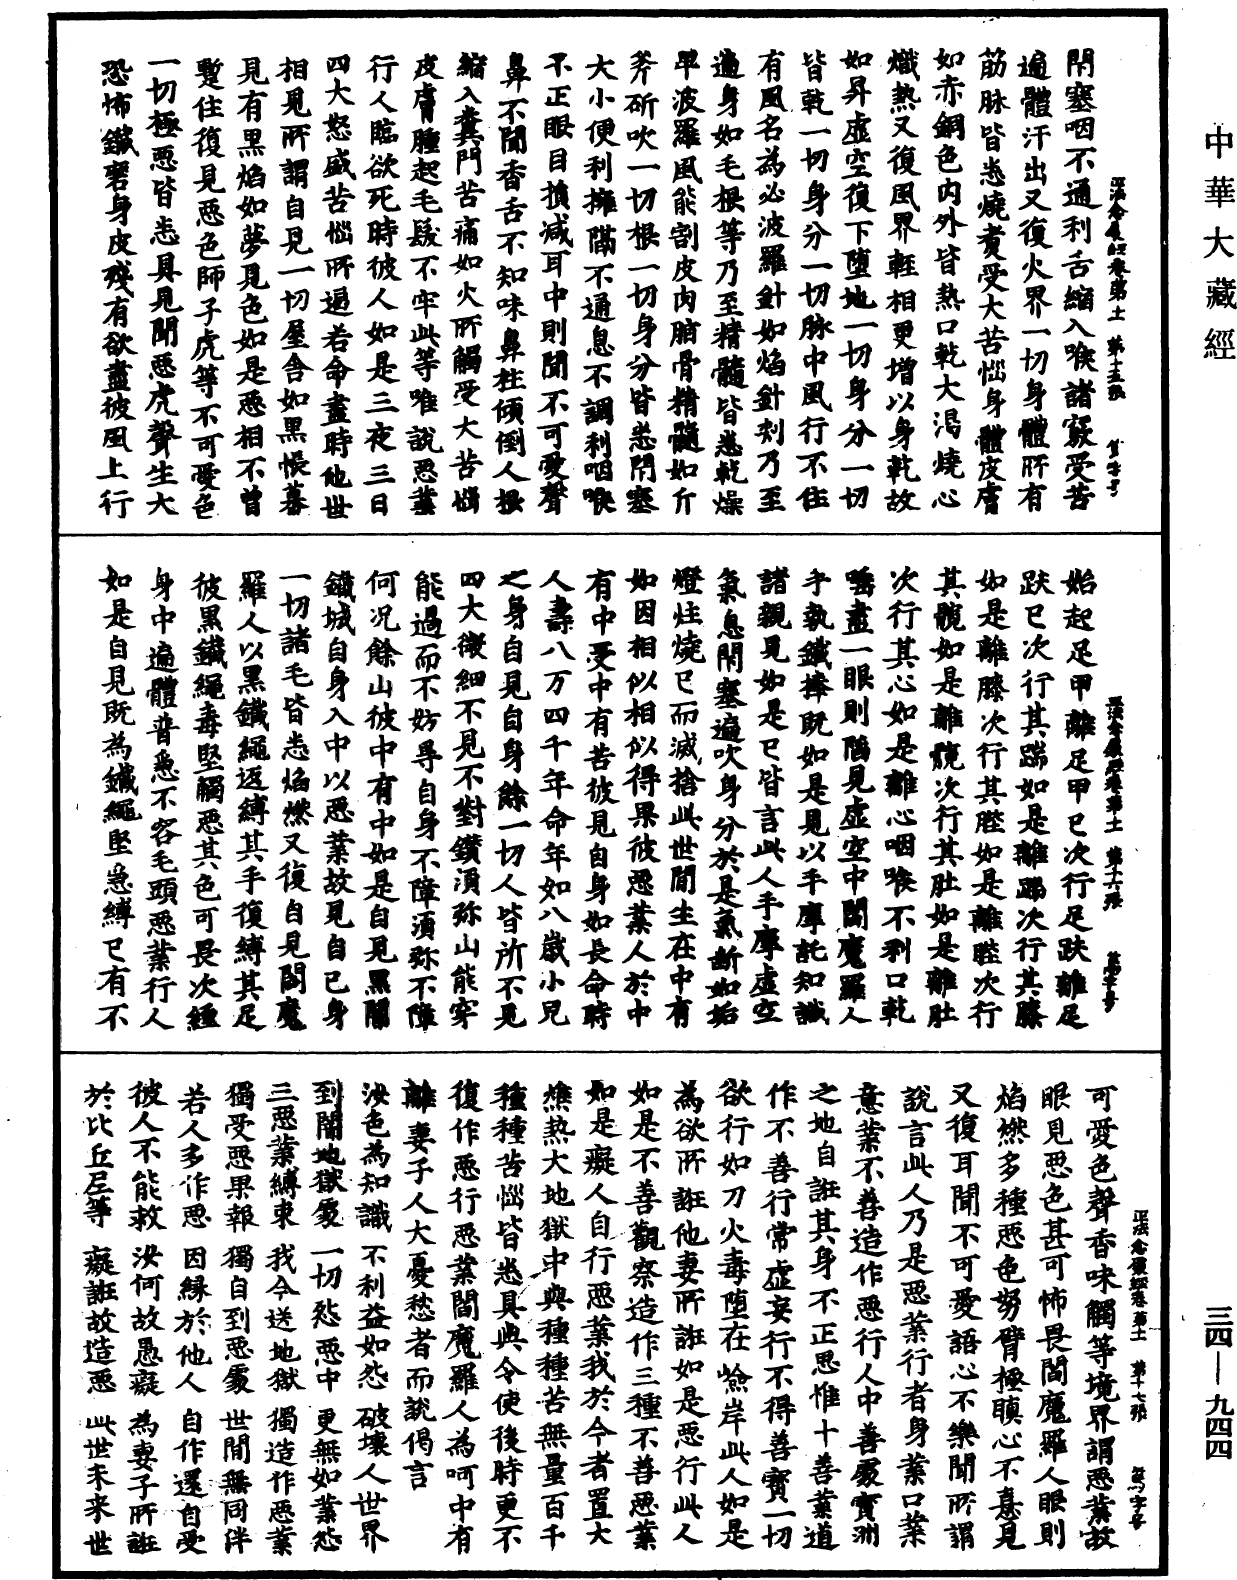 中華大藏經
三四—九四四
正法念處經卷第十一 第十五張
閇塞咽不通利舌縮入喉諸竅受苦
遍體汗出又復火界一切身體所有
筋脉皆悉燒煑受大苦惱身體皮膚
如赤銅色内外皆熱口乾大渴燒心
熾熱又復風界輕相更增以身乾故
如昇虛空復下墮地一切身分一切
皆乾一切身分一切脉中風行不住
有風名為必波羅針如焰針刾乃至
遍身如毛根等乃至精髓皆悉乾燥
畢波羅風能割皮肉脂骨精髓如斤
斧斫吹一切根一切身分皆悉閇塞
大小便利擁隔不通息不調利咽喉
不正眼目損減耳中則聞不可愛聲
鼻不聞香舌不知味鼻柱傾倒人根
縮入糞門苦痛如火所觸受大苦惱
皮膚腫起毛髮不牢此等唯說惡業
行人臨欲死時彼人如是三夜三日
四大怒盛苦惱所逼若命盡時他世
相見所謂自見一切屋舍如黑帳幕
見有黑焰如夢見色如是惡相不曾
蹔住復見惡色師子虎等不可愛色
一切極惡皆悉具見聞惡虎聲生大
恐怖鐵礕身皮殘有欲盡彼風上行
正法念處經卷第十一 第十六張
始起足甲離足甲已次行足趺離足
趺已次行其踹如是離踹次行其膝
如是離膝次行其䏶如是離䏶次行
其髖如是離髖次行其肚如是離肚
次行其心如是離心咽喉不利口乾
噎盡一眼則陷見虛空中閻魔羅人
手執鐵捧既如是見以手摩託知識
諸親見如是已皆言此人手摩虛空
氣息閇塞遍吹身分於是氣斷如姤
燈炷燒已而滅捨此世間生在中有
如因相似相似得果彼惡業人於中
有中受中有苦彼見自身如長命時
人壽八万四千年命年如八歲小兒
之身自見自身餘一切人皆所不見
四大微細不見不對鑽須弥山能穿
能過而不妨㝵自身不障須弥不障
何况餘山彼中有中如是自見黑闇
鐵城自身入中以惡業故見自已身
一切諸毛皆悉焰燃又復自見閻魔
羅人以黑鐵繩返縛其手復縛其足
彼黑鐵繩毒堅觸惡其色可畏次纏
身中遍體普悉不容毛頭惡業行人
如是自見既為鐵繩堅急縛已有不
正法念處經卷第十一 第十七張
可愛色聲香味觸等境界謂惡業故
眼見惡色甚可怖畏閻魔羅人眼則
焰燃多種惡色努臂極瞋心不憙見
又復耳聞不可愛語心不樂聞所謂
說言此人乃是惡業行者身業口業
意業不善造作惡行人中善處寶洲
之地自誑其身不正思惟十善業道
作不善行常虛妄行不得善寶一切
欲行如刀火毒墮在嶮岸此人如是
為欲所誑他妻所誑如是惡行此人
如是不善觀察造作三種不善惡業
如是癡人自行惡業我於今者置大
燋熱大地獄中與種種苦無量百千
種種苦惱皆悉具與令使後時更不
復作惡行惡業閻魔羅人為呵中有
離妻子人大憂愁者而說偈言
汝色為知識 不利益如怨 破壞人世界
到闇地獄處 一切怨惡中 更無如業怨
三惡業縛束 我今送地獄 獨造作惡業
獨受惡果報 獨自到惡處 世間無同伴
若人多作惡 因緣於他人 自作還自受
彼人不能救 汝何故愚癡 為妻子所誑
於比丘尼等 癡誑故造惡 此世未來世